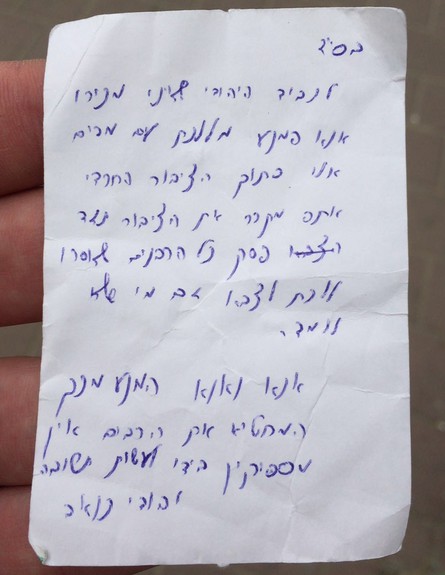 בס״ד
לנביב היהודי שאיני מכירו
אנא המנע מללכת עם מדים
אלו בתוך הציבור החרדי
אתה מקרר את הציבור נגד
פסק כל הרבנים שאסרו
ללכת לצבא גם מי שלא
לומד.
אנא ואנא המנע מכך
המחטיא את הרבים אין
מספיקין בידי לעשות תשובה
יהודי כואב